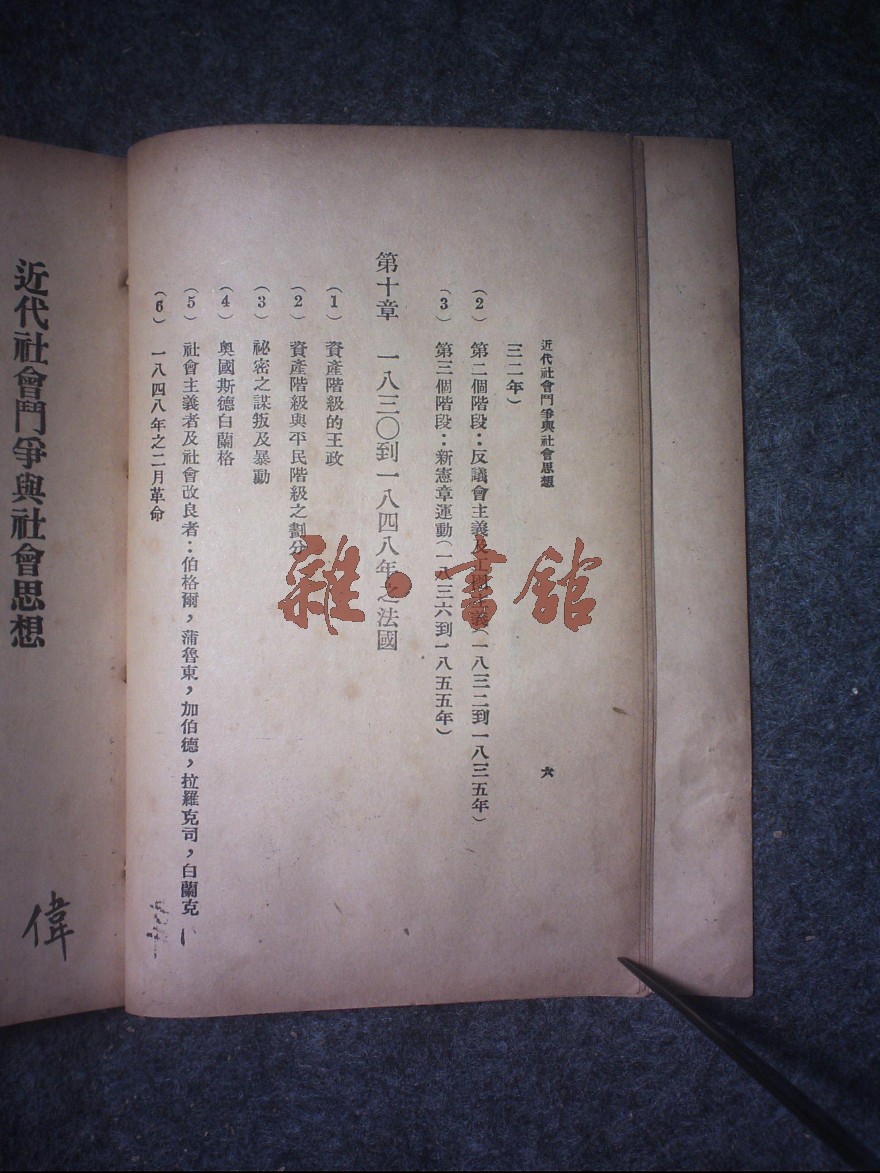 近代社會鬥爭與社會思想
六
三二年)
(2) 第二個階段:反議會主義及工團主義(一八三二到一八三五年)
(3) 第三個階段:新憲章運動(一八三六到一八五五年)
第十章 一八三〇到一八四八年之法國
(1) 資產階級的王政
(2) 資產階級與平民階級之劃分
(3) 祕密之謀叛及暴動
(4) 奧國斯德白蘭格
(5) 社會主義者及社會改良者:伯格爾,蒲魯東,加伯德,拉羅克司,白蘭克
(6) 一八四八年之二月革命
雜·書館
近代社會鬥爭與社會思想
偉